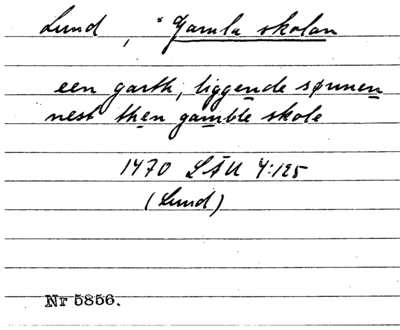 Lund, *Gamla skolan
een garth, liggende sønnen
nest then gamble skole
1470 LÄU 4:125
(Lund)
Nr 5856.